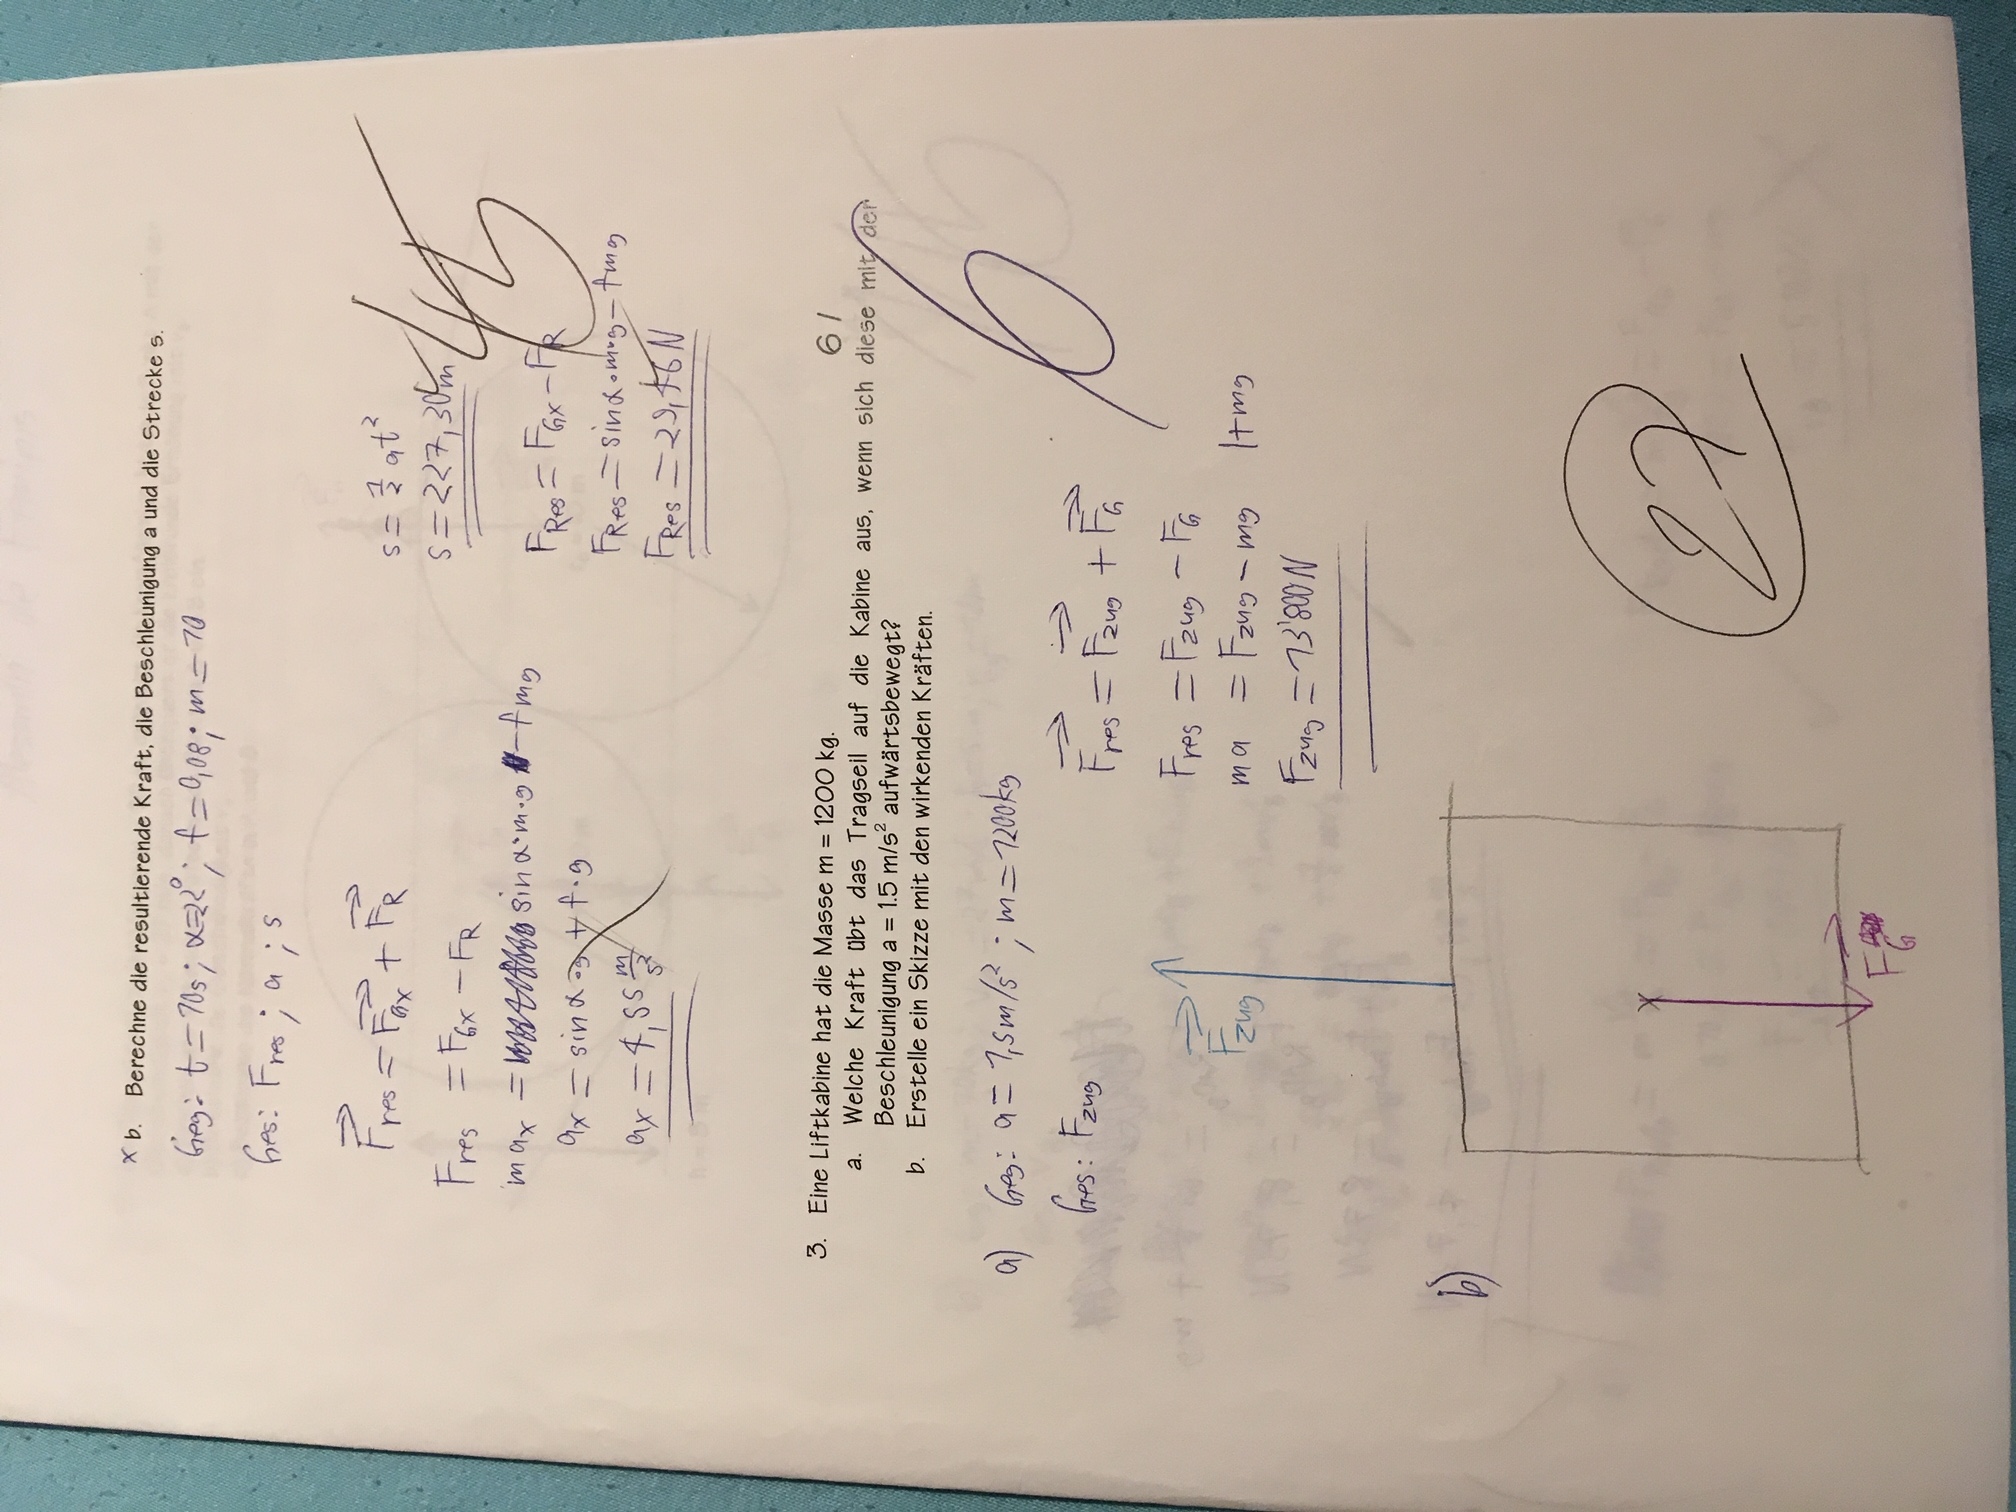 x b. Berechne die resultierende Kraft, die Beschleunigung a und die Strecke s.
Geg: t = 10s; α=22°; f = 0,08; m = 10
Ges: Fres ; a ; s
Fres = FGx + FR
Fres = FGx − FR
max = sinα·m·g − fmg
ax = sinα·g + f·g
ax = 4,55 m/s²
s = 1/2 at²
s = 227,30m
45
FRes = FGx − FR
FRes = sinα·m·g − fmg
FRes = 29,46N
3. Eine Liftkabine hat die Masse m = 1200 kg.
6/
a. Welche Kraft übt das Tragseil auf die Kabine aus, wenn sich diese mit der
Beschleunigung a = 1.5 m/s² aufwärtsbewegt?
b. Erstelle ein Skizze mit den wirkenden Kräften.
6
a) Geg: a = 1,5m/s² ; m = 1200kg
Ges: Fzug
Fres = Fzug + FG
Fres = Fzug − FG
ma = Fzug − mg |+mg
Fzug = 13'800N
Fzug
b)
FG
27